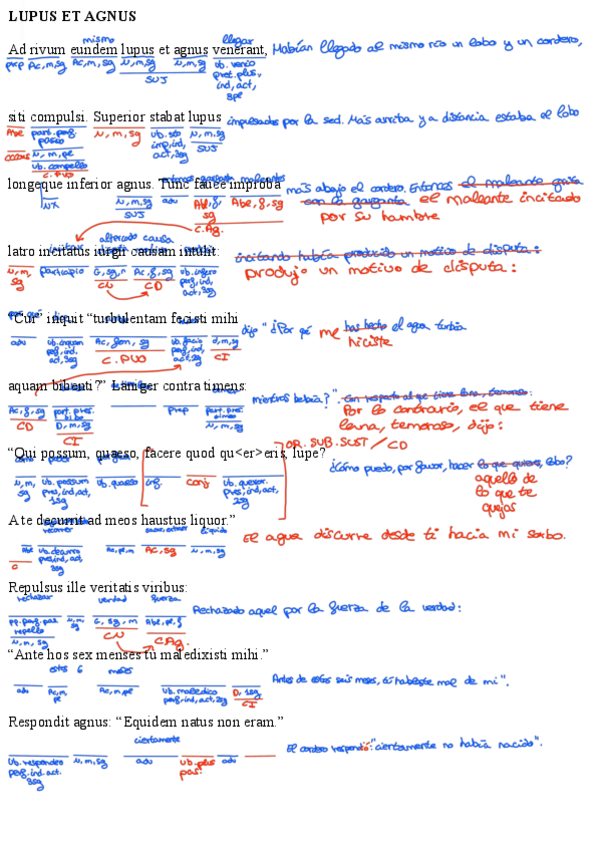 LUPUS ET AGNUS
mismo llegar
Ad rivum eundem lupus et agnus venerant, Habían llegado al mismo río un lobo y un cordero,
prep Ac,m,sg Ac,m,sg N,m,sg N,m,sg vb. venio
SUJ pret.plus,
ind,act,
3pl
siti compulsi. Superior stabat lupus impulsados por la sed. Más arriba y a distancia estaba el lobo
Abl part.perf. N,m,sg vb. sto N,m,sg
pasivo imp,ind, SUJ
N,m,pl act,3sg
vb. compello
C.PVO
longeque inferior agnus. Tunc fauce improba más abajo el cordero. Entonces el maleante incitado
NX N,m,sg adv Abl,f, Abl,f,sg por su hambre
SUJ sg
C.Ag.
altercado causa
latro incitatus iurgii causam intulit: incitando había producido un motivo de disputa:
N,m, participio G,sg,n Ac,f,sg vb. infero produjo un motivo de disputa:
sg CN CD perf,ind,
act,3sg
“Cur” inquit “turbulentam fecisti mihi dijo "¿Por qué me has hecho el agua turbia
adv vb. inquam Ac, fem, sg vb. facio d,m,sg hiciste
perf,ind, C.PVO perf,ind, CI
act,3sg act,2sg
aquam bibenti?” Laniger contra timens: mientras bebía?". Con respecto al que tiene lana, temeroso:
Ac,f,sg part.pres. prep part.pres. Por lo contrario, el que tiene
CD bibo N,m,sg lana, temeroso, dijo:
D,m,sg
CI
OR. SUB. SUST / CD
“Qui possum, quaeso, facere quod qu<er>eris, lupe? ¿Cómo puedo, por favor, hacer lo que quieres, lobo?
N,m, vb. possum vb. quaeso inf. conj vb. queror. aquello de
sg pres,ind,act, pres,ind,act, lo que te
1sg 2sg quejas
A te decurrit ad meos haustus liquor.” El agua discurre desde ti hacia mi sorbo.
Abl vb. decurro Ac,pl,m Ac,sg N,m,sg
pres,ind,act,
3sg
Repulsus ille veritatis viribus:
rechazar verdad fuerza Rechazado aquel por la fuerza de la verdad:
pp.perf.pas N,m, G, sg, m Abl,pl,f
repello sg CN C.Ag.
N,m,sg
“Ante hos sex menses tu maledixisti mihi.”
estos 6 meses
adv Ac,m, Ac,m,pl vb. maledico D, 1sg Antes de estos seis meses, tú hablaste mal de mi".
pl perf,ind,act,2sg CI
Respondit agnus: “Equidem natus non eram.”
ciertamente El cordero respondió:"ciertamente no había nacido".
vb. respondeo N,m,sg adv vb. plus adv
perf.ind.act. pas.
3sg